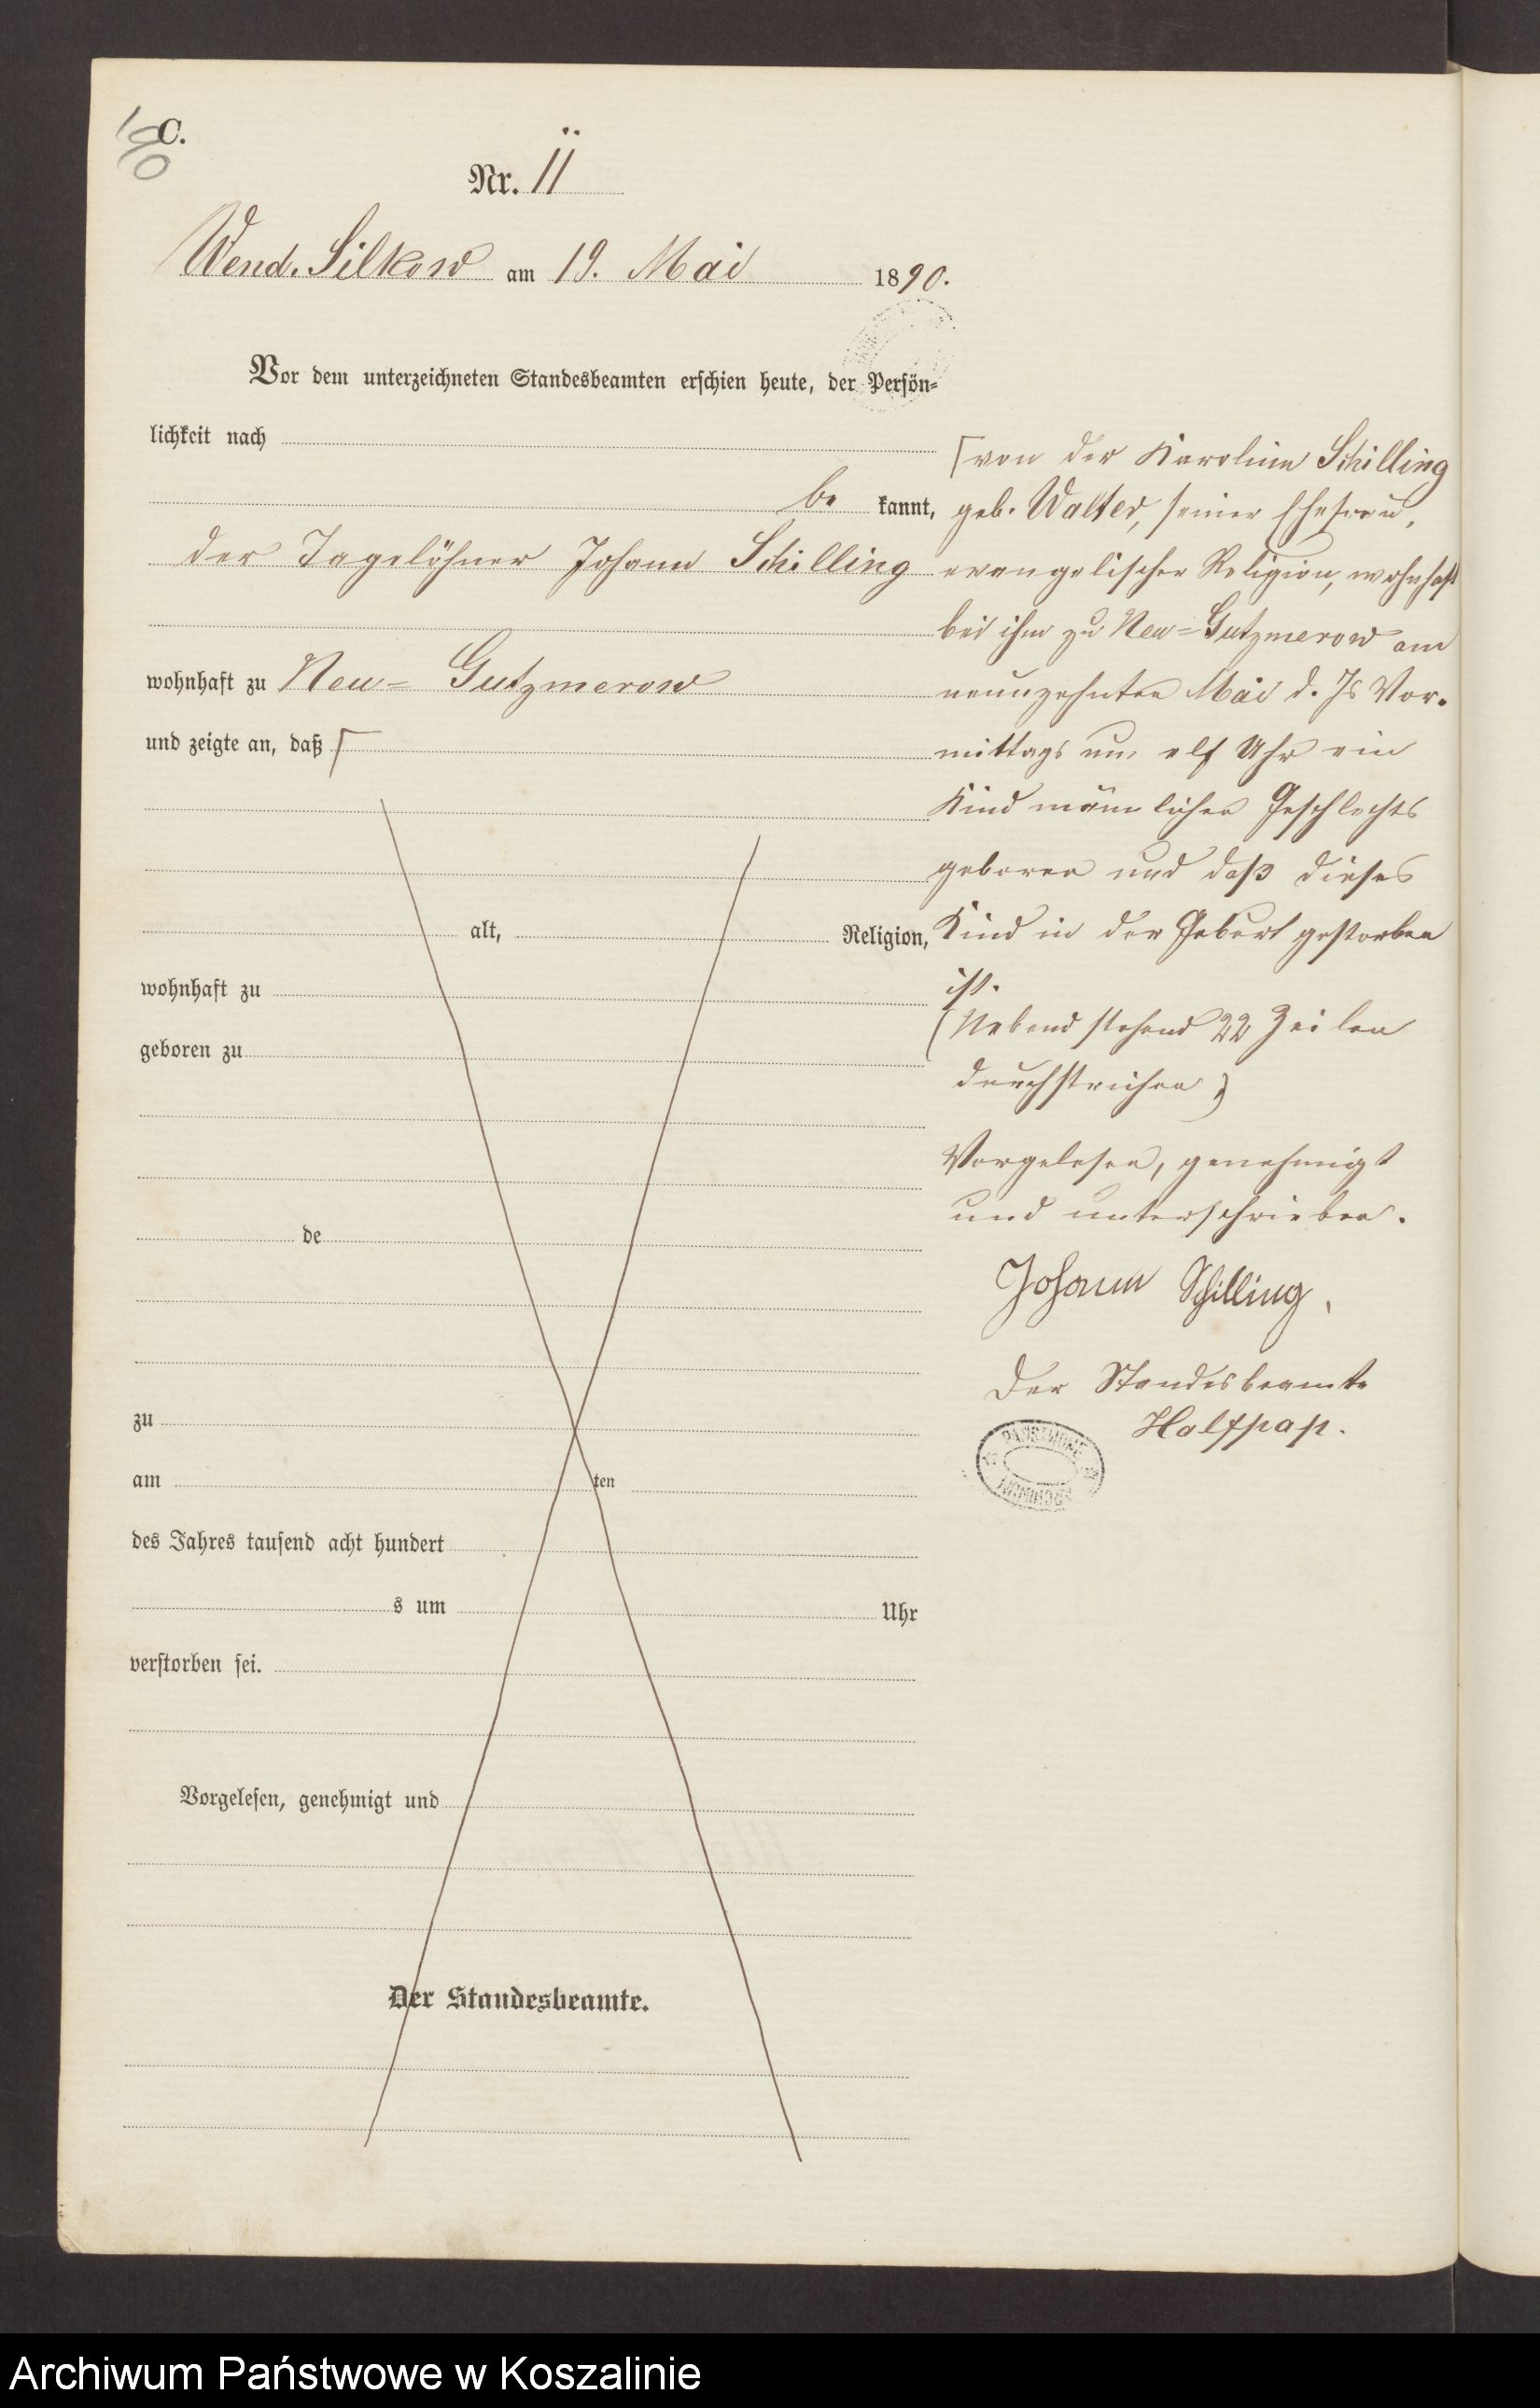 C.
Nr. 11
Wend. Silkow am 19. Mai 1890.
Vor dem unterzeichneten Standesbeamten erschien heute, der Persön-
lichkeit nach
be kannt,
der Tagelöhner Johann Schilling
wohnhaft zu Neu- Gutzmerow
und zeigte an, daß ⌈
alt, Religion,
wohnhaft zu
geboren zu
de
zu
am ten
des Jahres tausend acht hundert
s um Uhr
verstorben sei.
Vorgelesen, genehmigt und
Der Standesbeamte.
⌈von der Karoline Schilling
geb. Walter, seiner Ehefrau,
evangelischer Religion, wohnhaft
bei ihm zu Neu-Gutzmerow am
neunzehnten Mai d. Js Vor-
mittags um elf Uhr ein
Kind männlichen Geschlechts
geboren und daß dieses
Kind in der Geburt gestorben
ist.
(Nebenstehend 22 Zeilen
durchstrichen)
Vorgelesen, genehmigt
und unterschrieben.
Johann Schilling.
Der Standesbeamte
Halfpap.
Archiwum Państwowe w Koszalinie